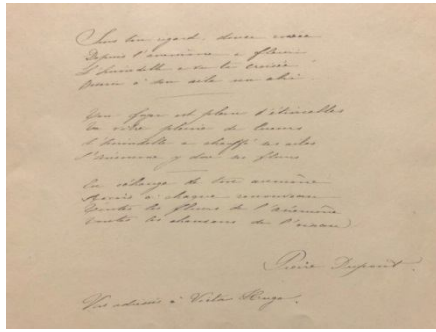 Sous ton regard, douce
Depuis l'aumône a fleuri
L'hirondelle a vu ta croisée
à son aile un abri
Ton foyer est plein d'étincelles
Ta vitre pleine de lueurs
L'hirondelle a chauffé ses ailes
L'aumône y dore ses fleurs
En échange de ton aumône
Reçois à chaque renouveau
Toutes les fleurs de l'anémone
Toutes les chansons de l'oiseau
Pierre Dupont.
Vers adressés à Victor Hugo.